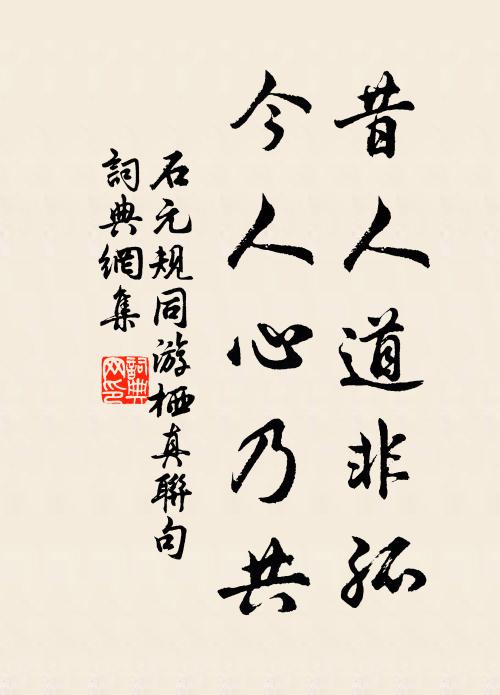 昔人道非孤
今人心乃共
石元規同游栖真聯句
詞典網集
詞典網印